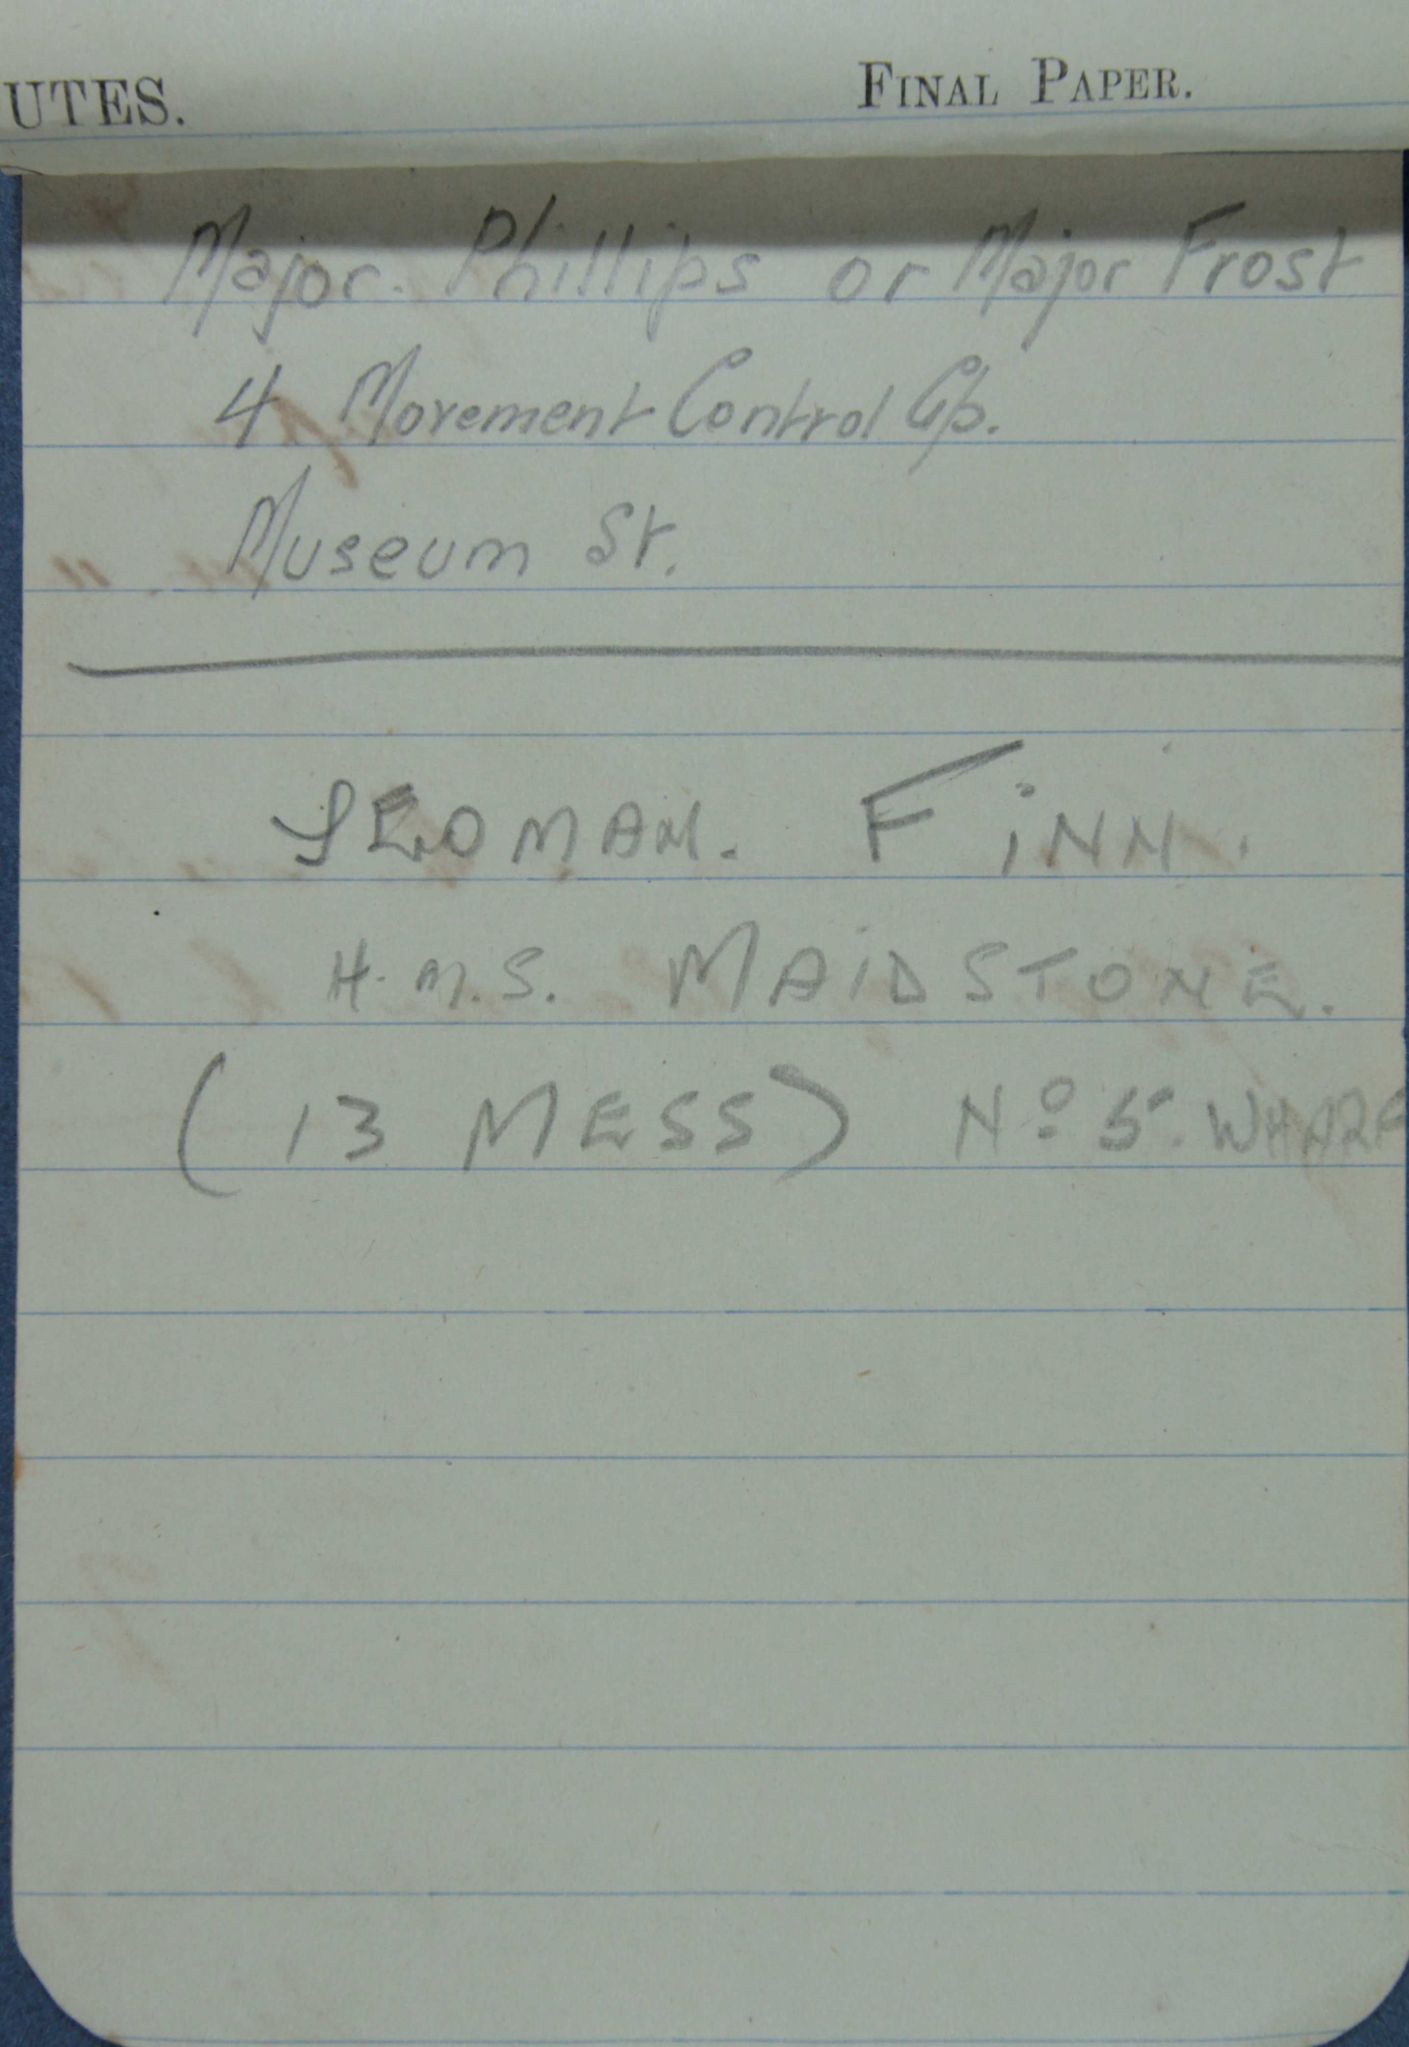 UTES. FINAL PAPER.
Major. Phillips or Major Frost
4 Movement Control Gp.
Museum St.
YEOMAN. FiNN.
H.M.S. MAiDSTONE.
(13 MESS) No 5. WHARF